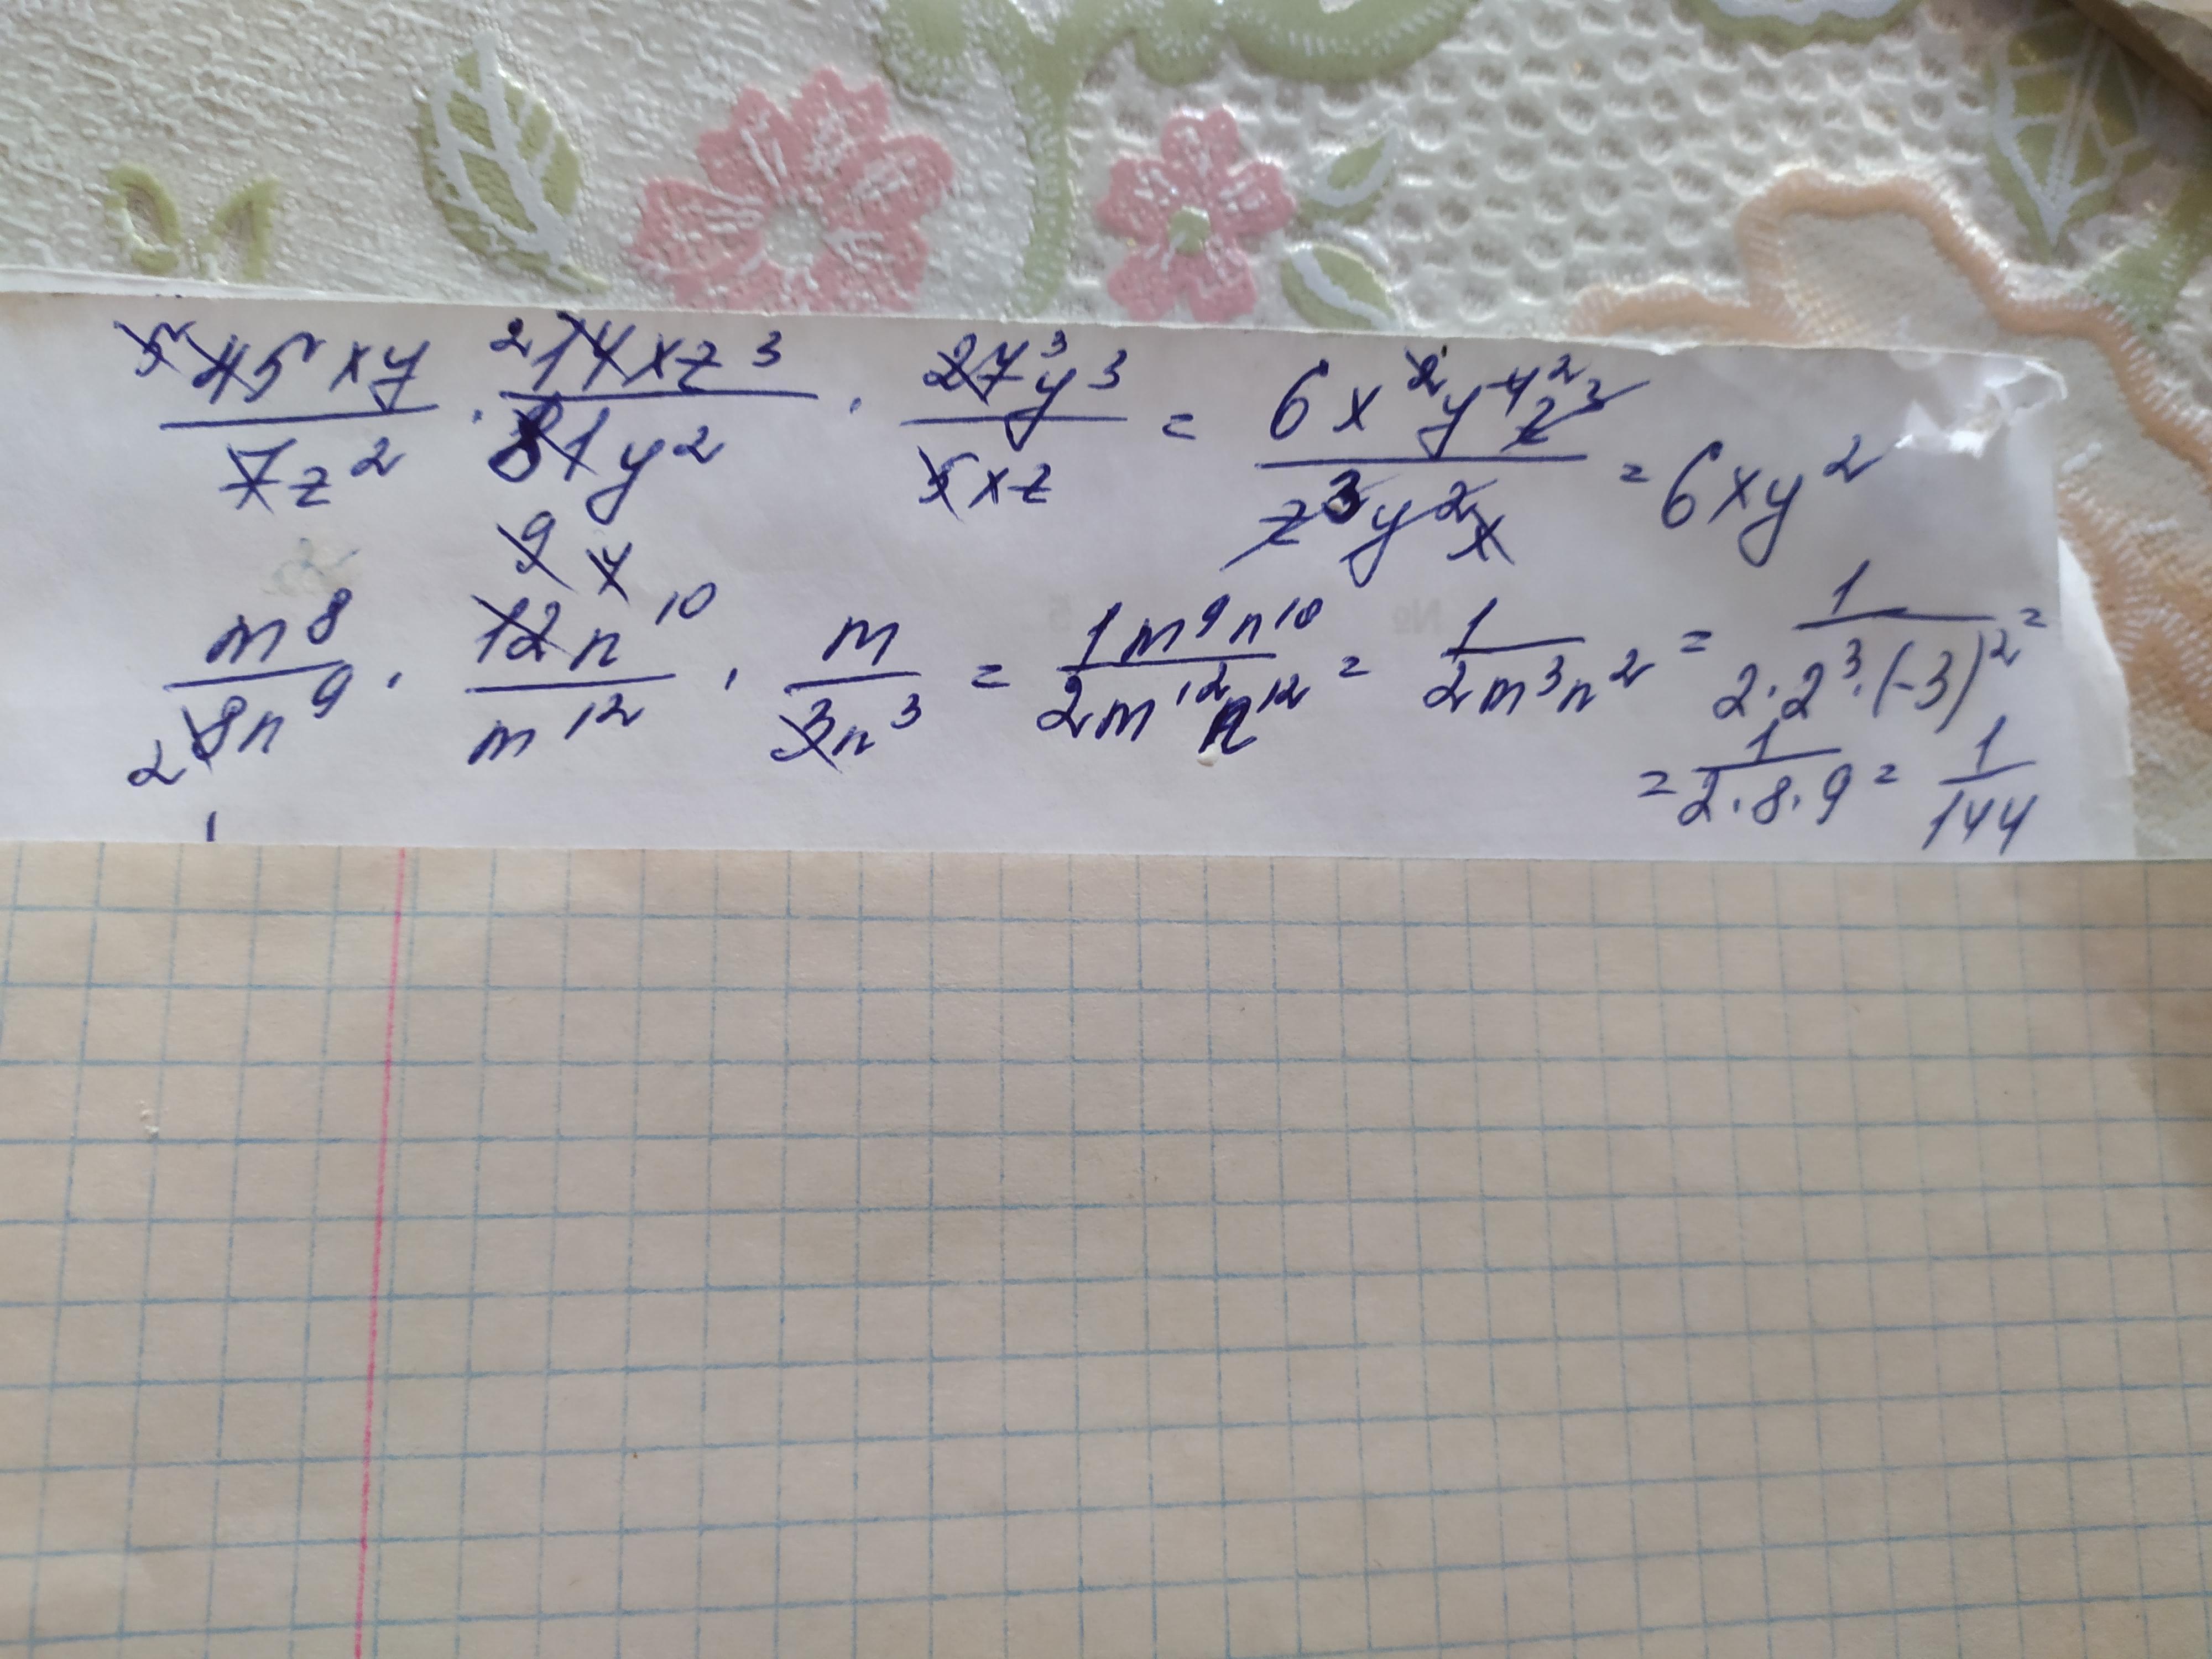 ⁵45xy/7z² · ²14xz³/81y² · 27³y³/5xz = 6x²y⁴²z³/z³y²x = 6xy²
9 4
m⁸/8n⁹ · 12n¹⁰/m¹² · m/3n³ = 1m⁹n¹⁰/2m¹²n¹² = 1/2m³n² = 1/2·2³·(-3)² =
2
= 1/2·8·9 = 1/144